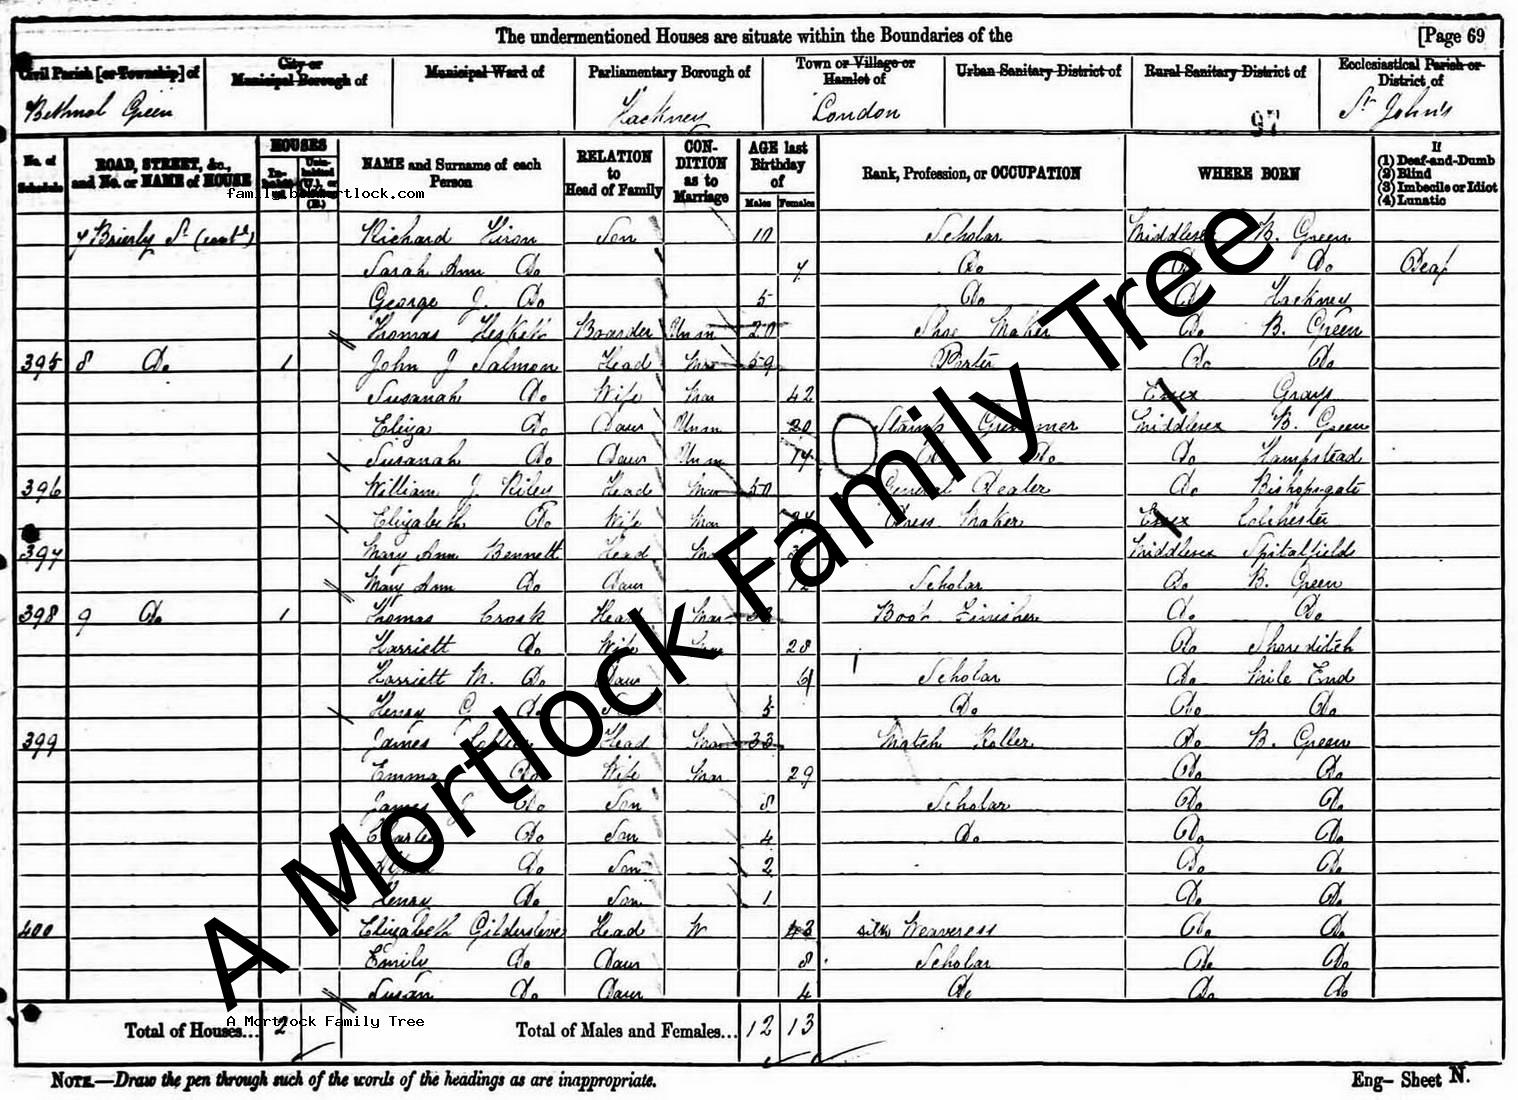 The undermentioned Houses are situate within the Boundaries of the [Page 69
Civil Parish [or Township] of City or Municipal Borough of Municipal Ward of Parliamentary Borough of Town or Village or Hamlet of Urban Sanitary District of Rural Sanitary District of Ecclesiastical Parish or District of
Bethnal Green Hackney London St John's
97
No. of Schedule ROAD, STREET, &c., and No. or NAME of HOUSE HOUSES Inhabited Uninhabited (U.), or Building (B.) NAME and Surname of each Person RELATION to Head of Family CONDITION as to Marriage AGE last Birthday of Males Females Rank, Profession, or OCCUPATION WHERE BORN If (1) Deaf-and-Dumb (2) Blind (3) Imbecile or Idiot (4) Lunatic
family.bemortlock.com
7 Brierly St (contd) Richard Hiron Son 10 Scholar Middlesex B. Green
Sarah Ann Do 7 Do Do Do Deaf
George J. Do 5 Do Do Hackney
Thomas Boarder Unm 20 Shoe Maker Do B. Green
395 8 Do 1 John J Salmon Head Mar 59 Porter Do Do
Susanah Do Wife Mar 42 Essex Grays
Eliza Do Daur Unm 20 Stamp Gummer Middlesex B. Green
Susanah Do Daur Unm 17 Do Do Do Hampstead
396 William J Riley Head Mar 50 General Dealer Do Bishopsgate
Elizabeth Do Wife Mar Dress Maker Essex Colchester
397 Mary Ann Bennett Head Middlesex Spitalfields
Mary Ann Do Daur 12 Scholar Do B. Green
398 9 Do 1 Thomas Crosk Head Mar Boot Finisher Do Do
Harriett Do Wife Mar 28 Do Shoreditch
Harriett M. Do Daur 6 Scholar Do Mile End
Henry G Do Son 5 Do Do Do
399 James Head Mar 33 Match Seller Do B. Green
Emma Do Wife Mar 29 Do Do
James J Do Son 8 Scholar Do Do
Charles Do Son 4 Do Do Do
Alfred Do Son 2 Do Do
Henry Do Son 1 Do Do
400 Elizabeth Gildersleve Head W 43 silk Weaveress Do Do
Emily Do Daur 8 Scholar Do Do
Susan Do Daur 4 Do Do Do
Total of Houses... 2 Total of Males and Females... 12 13
A Mortlock Family Tree
A Mortlock Family Tree
NOTE.—Draw the pen through such of the words of the headings as are inappropriate.
Eng– Sheet N.